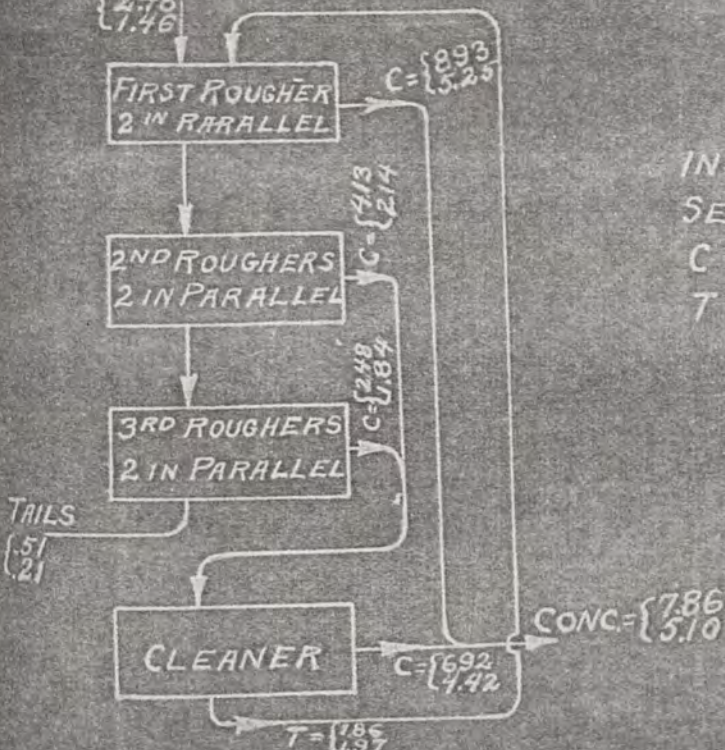 1.46
FIRST ROUGHER
2 IN RARALLEL
C= { 893
5.25
2ND ROUGHERS
2 IN PARALLEL
C= { 4.13
2.14
3RD ROUGHERS
2 IN PARALLEL
C= { 2.48
1.84
TAILS
{ .51
.21
CLEANER
C= { 692
4.42
CONC.= { 7.86
5.10
T= { 1.86
1.97
IN
SE
C
T